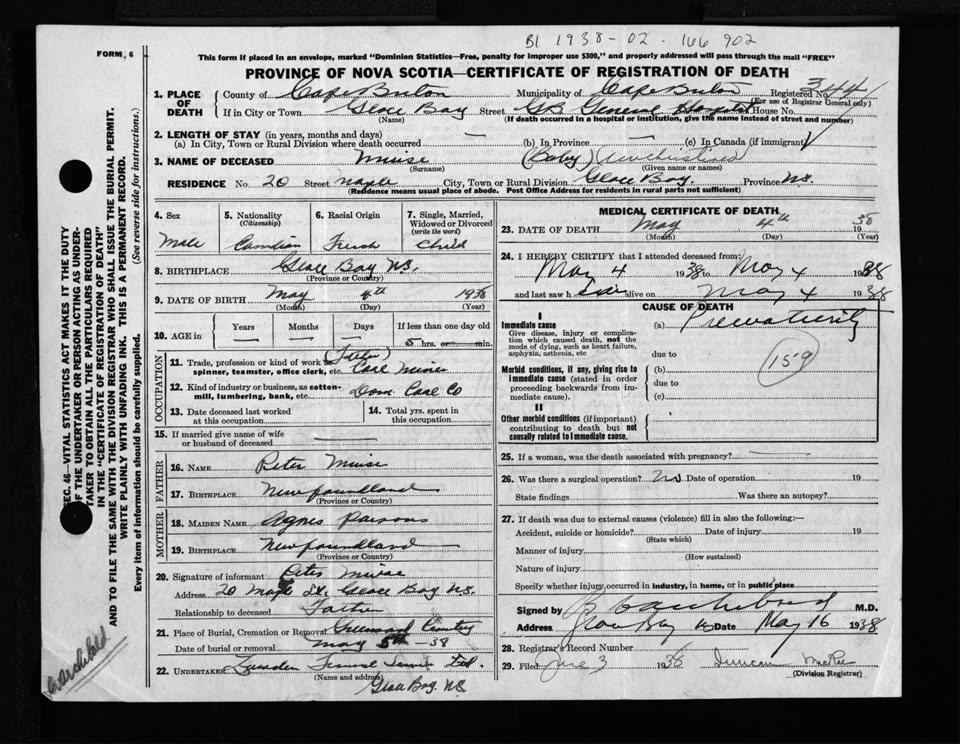 B1 1938-02-166902
FORM 6
This form if placed in an envelope, marked "Dominion Statistics—Free, penalty for improper use $300," and properly addressed will pass through the mail "FREE"
PROVINCE OF NOVA SCOTIA—CERTIFICATE OF REGISTRATION OF DEATH
1. PLACE OF DEATH
County of Cape Breton Municipality of Cape Breton Registered No. 344
(For use of Registrar General only)
If in City or Town Glace Bay Street GB General Hospital House No.
(Name) (If death occurred in a hospital or institution, give the name instead of street and number)
2. LENGTH OF STAY (in years, months and days)
(a) In City, Town or Rural Division where death occurred — (b) In Province — (c) In Canada (if immigrant)
3. NAME OF DECEASED Muise (Baby)
(Surname) (Given name or names)
RESIDENCE No. 20 Street Maple City, Town or Rural Division Glace Bay. Province N.S.
(Residence means usual place of abode. Post Office Address for residents in rural parts not sufficient)
4. Sex
Male
5. Nationality
(Citizenship)
Canadian
6. Racial Origin
French
7. Single, Married, Widowed or Divorced
(write the word)
Child
8. BIRTHPLACE Glace Bay N.S.
(Province or Country)
9. DATE OF BIRTH May 4th 1938
(Month) (Day) (Year)
10. AGE in
Years Months Days If less than one day old
— — — 5 hrs. or — min.
OCCUPATION
11. Trade, profession or kind of work as spinner, teamster, office clerk, etc. (Father) Coal Miner
12. Kind of industry or business, as cotton-mill, lumbering, bank, etc. Dom. Coal Co
13. Date deceased last worked at this occupation
14. Total yrs. spent in this occupation
15. If married give name of wife or husband of deceased —
FATHER
16. NAME Peter Muise
17. BIRTHPLACE Newfoundland
(Province or Country)
MOTHER
18. MAIDEN NAME Agnes Parsons
19. BIRTHPLACE Newfoundland
(Province or Country)
20. Signature of informant Peter Muise
Address 20 Maple St. Glace Bay N.S.
Relationship to deceased Father
21. Place of Burial, Cremation or Removal Greenwood Cemetery
Date of burial or removal May 5th 38
22. UNDERTAKER Funeral Service Ltd.
(Name and address)
Glace Bay. N.S.
MEDICAL CERTIFICATE OF DEATH
23. DATE OF DEATH May 4th 1938
(Month) (Day) (Year)
24. I HEREBY CERTIFY that I attended deceased from:
May 4 1938 to May 4 1938
and last saw h alive on May 4 1938
CAUSE OF DEATH
I
Immediate cause
Give disease, injury or complication which caused death, not the mode of dying, such as heart failure, asphyxia, asthenia, etc
(a) Prematurity
due to
159
Morbid conditions, if any, giving rise to immediate cause (stated in order proceeding backwards from immediate cause).
(b)
due to
(c)
II
Other morbid conditions (if important) contributing to death but not causally related to immediate cause.
25. If a woman, was the death associated with pregnancy? —
26. Was there a surgical operation? No Date of operation 19
State findings Was there an autopsy?
27. If death was due to external causes (violence) fill in also the following:—
Accident, suicide or homicide? Date of injury 19
(State which)
Manner of injury
(How sustained)
Nature of injury
Specify whether injury occurred in industry, in home, or in public place
Signed by M.D.
Address Glace Bay NS Date May 16 1938
28. Registrar's Record Number
29. Filed June 3 1938 Duncan McRae
(Division Registrar)
SEC. 46—VITAL STATISTICS ACT MAKES IT THE DUTY
OF THE UNDERTAKER OR PERSON ACTING AS UNDER-
TAKER TO OBTAIN ALL THE PARTICULARS REQUIRED
IN THE "CERTIFICATE OF REGISTRATION OF DEATH"
AND TO FILE THE SAME WITH THE DIVISION REGISTRAR WHO SHALL ISSUE THE BURIAL PERMIT.
WRITE PLAINLY WITH UNFADING INK. THIS IS A PERMANENT RECORD.
Every item of information should be carefully supplied. (See reverse side for instructions.)